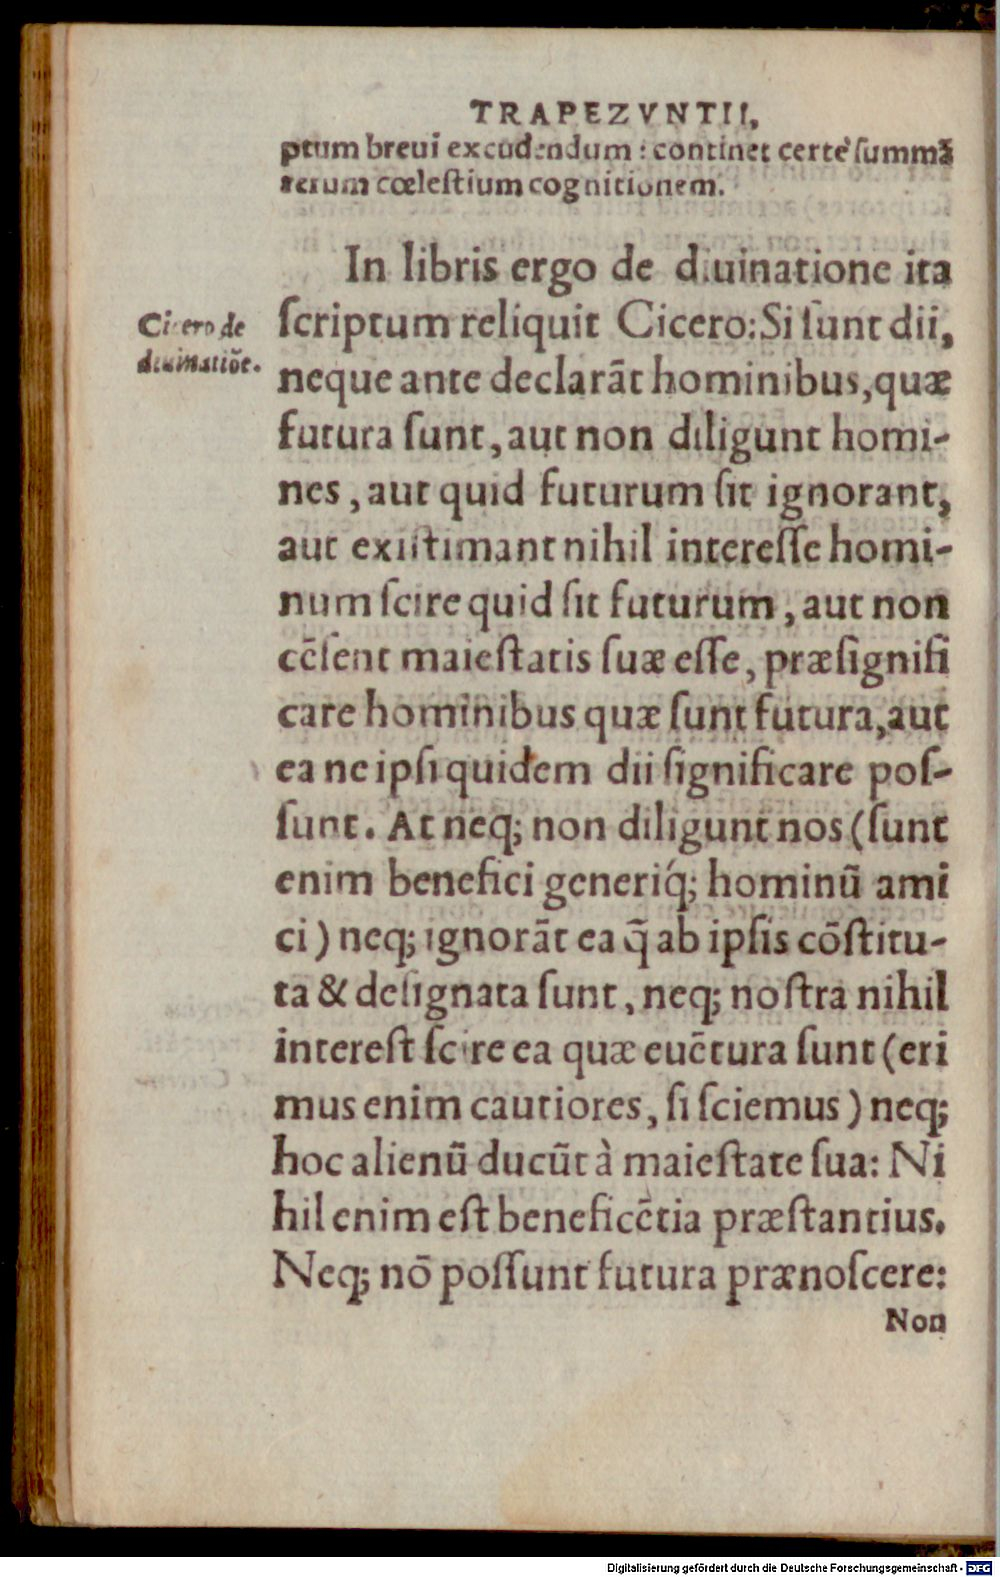 TRAPEZVNTII,
ptum breui excudendum : continet certè ſummā
rerum cœleſtium cognitionem.
In libris ergo de diuinatione ita
Cicero de
diuinatiōe.
ſcriptum reliquit Cicero: Si ſunt dii,
neque ante declarāt hominibus, quæ
futura ſunt, aut non diligunt homi-
nes, aut quid futurum ſit ignorant,
aut exiſtimant nihil intereſſe homi-
num ſcire quid ſit futurum, aut non
cēſent maieſtatis ſuæ eſſe, præſignifi
care hominibus quæ ſunt futura, aut
ea ne ipſi quidem dii ſignificare poſ-
ſunt. At neq; non diligunt nos (ſunt
enim benefici generiq́; hominū ami
ci) neq; ignorāt ea q̄ ab ipſis cōſtitu-
ta & deſignata ſunt, neq; noſtra nihil
intereſt ſcire ea quæ euētura ſunt (eri
mus enim cautiores, ſi ſciemus) neq;
hoc alienū ducūt à maieſtate ſua: Ni
hil enim eſt beneficētia præſtantius.
Neq; nō poſſunt futura prænoſcere:
Non
Digitalisierung gefördert durch die Deutsche Forschungsgemeinschaft - DFG